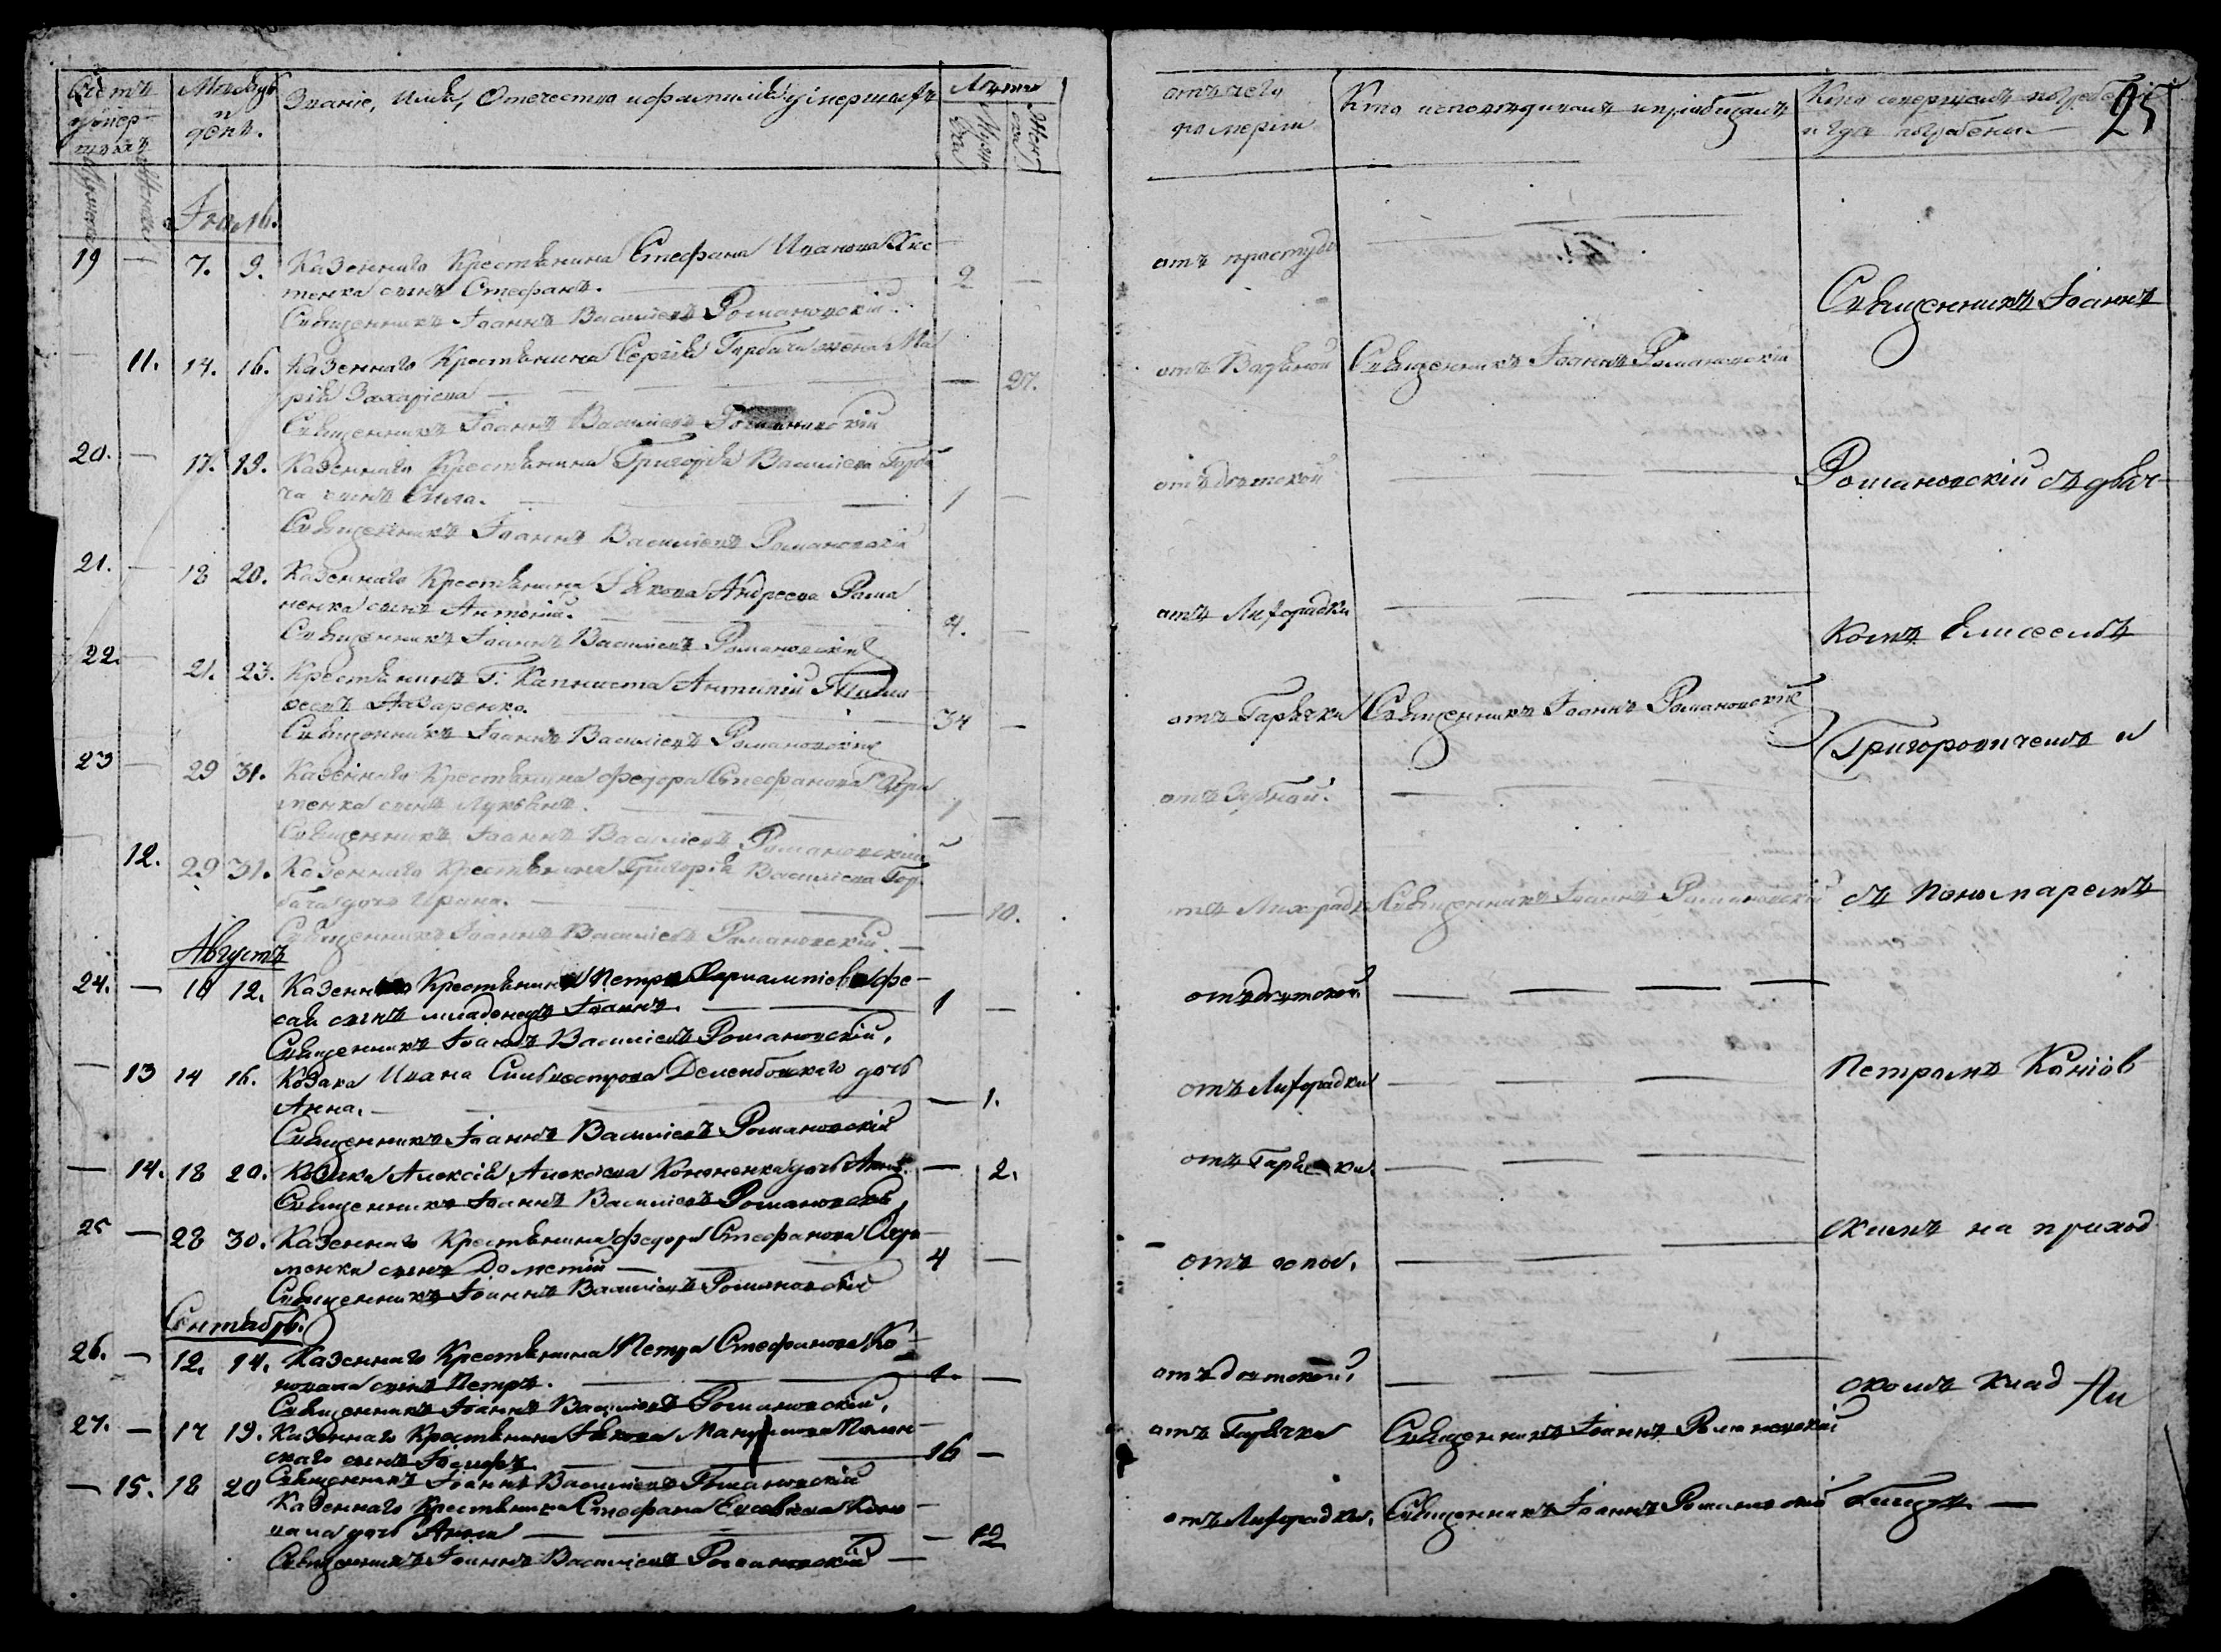 Счетъ умер-
шихъ
Мѣсяцъ
и
день.
Званіе, имя, Отечество и фамилія умершихъ
Лѣта
Мужеска
Женска
Мужеска
Женска
Іюль.
19 — 7. 9. Казеннаго Крестьянина Стефана Иванова
тенка сынъ Стефанъ. — 2 —
Священникъ Іоаннъ Василіевъ Романовскій.
11. 14. 16. Казеннаго Крестьянина Сергія Горбача жена Ма
рія Захаріева — — 27.
Священникъ Іоаннъ Василіевъ Романовскій
20. — 17. 19. Казеннаго Крестьянина Григорія Василіева Горба
ча сынъ — 1 —
Священникъ Іоаннъ Василіевъ Романовскій
21. — 18 20. Казеннаго Крестьянина Іякова Андреева Рома
ненка сынъ Антоній. — 4. —
Священникъ Іоаннъ Василіевъ Романовскій
22. — 21. 23. Крестьянинъ Г. Капниста Антипій
Назаренко. — 34 —
Священникъ Іоаннъ Василіевъ Романовскій
23 — 29 31. Казеннаго Крестьянина Федора Стефанова
менка сынъ Лукьянъ. — —
Священникъ Іоаннъ Василіевъ Романовскій
12. 29 31. Казеннаго Крестьянина Григорія Василіева Гор-
бача дочь Ирина. — — 10.
Священникъ Іоаннъ Василіевъ Романовскій. —
Августъ
24. — 10 12. Казеннаго Крестьянина Петра Харлампіева Фе-
сая сынъ младенецъ Іоаннъ. — 1 —
Священникъ Іоаннъ Василіевъ Романовскій.
— 13 14 16. Козака Ивана Сильвестрова дочь
Анна. — — 1.
Священникъ Іоаннъ Василіевъ Романовскій
— 14. 18 20. Козака Алексія Алексіева Кононенка дочь — 2.
Священникъ Іоаннъ Василіевъ Романовскій
25 — 28 30. Казеннаго Крестьянина Федора Стефанова
менка сынъ Дометій — 4 —
Священникъ Іоаннъ Василіевъ Романовскій
Сентябрь.
26. — 12. 14. Казеннаго Крестьянина Петра Стефанова Ко-
новала сынъ Петръ. — 1. —
Священникъ Іоаннъ Василіевъ Романовскій.
27. — 17 19. Казеннаго Крестьянина Іякова
скаго сынъ Іосифъ — 16 —
Священникъ Іоаннъ Василіевъ Романовскій
— 15. 18 20 Казеннаго Крестьянина Стефана Коно
вала дочь Анна — — 12
Священникъ Іоаннъ Василіевъ Романовскій —
отъ чего
померли
Кто исповѣдывалъ и пріобщалъ
Кто совершалъ погребеніе
и гдѣ погребены
25
отъ простуды
отъ Священникъ Іоаннъ Романовскій
отъ дѣтской
отъ Лихорадки
отъ Горячки Священникъ Іоаннъ Романовскій
отъ
отъ Лихорадки Священникъ Іоаннъ Романовскій
отъ дѣтской
отъ Лихорадки
отъ Горячки
отъ оспы.
отъ дѣтской.
отъ Горячки Священникъ Іоаннъ Романовскій
отъ Лихорадки. Священникъ Іоаннъ Романовскій
Священникъ Іоаннъ
Романовскій съ дьяч-
комъ Елисеемъ
Григоровичемъ и
съ Пономаремъ
Петромъ Каніов
скимъ на приход
скомъ клад
бищѣ —